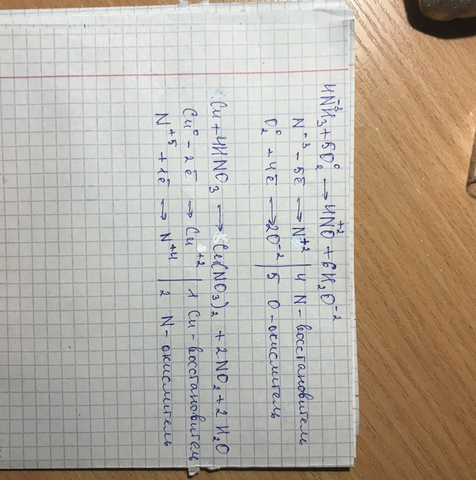 4NH₃⁻³ + 5O₂⁰ → 4NO⁺² + 6H₂O⁻²
N⁻³ - 5ē → N⁺² | 4 N - восстановитель
O₂⁰ + 4ē → 2O⁻² | 5 O - окислитель
Cu + 4HNO₃ → Cu(NO₃)₂ + 2NO₂ + 2H₂O
Cu⁰ - 2ē → Cu⁺² | 1 Cu - восстановитель
N⁺⁵ + 1ē → N⁺⁴ | 2 N - окислитель